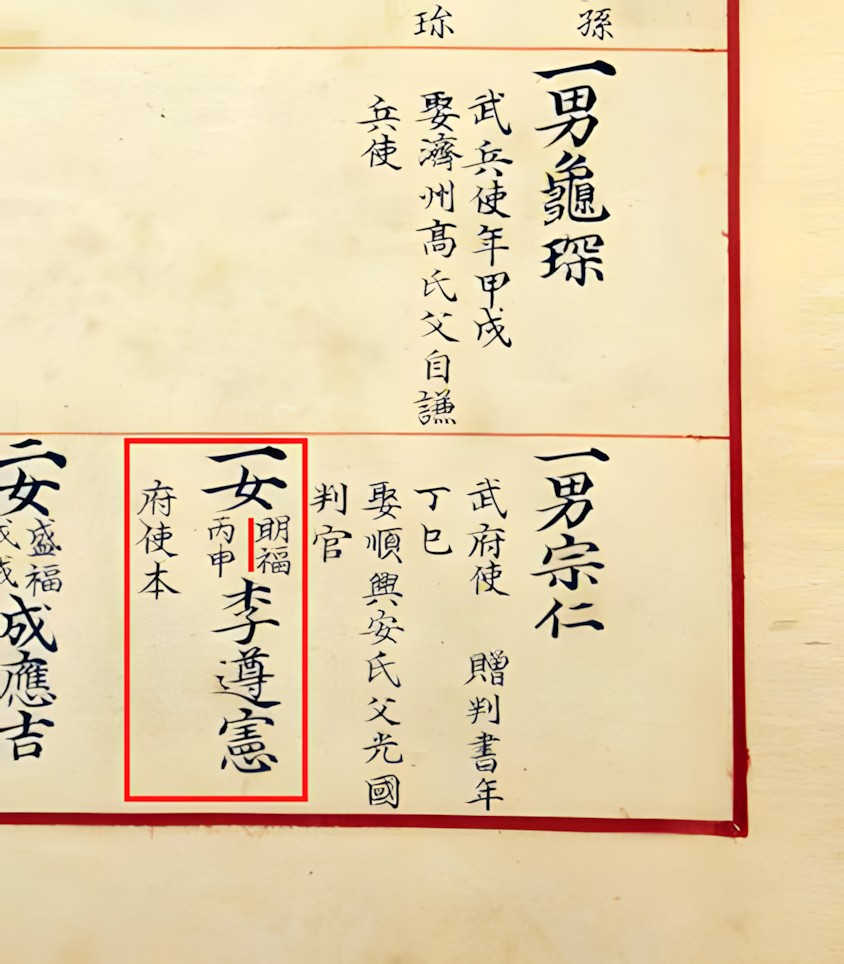 孫
珎
一男龜琛
武兵使年甲戌
娶濟州髙氏父自謙
兵使
一男宗仁
武府使 贈判書年
丁巳
娶順興安氏父光國
判官
一女
眀福
丙申
李遵憲
府使本
二女
盛福
成應吉